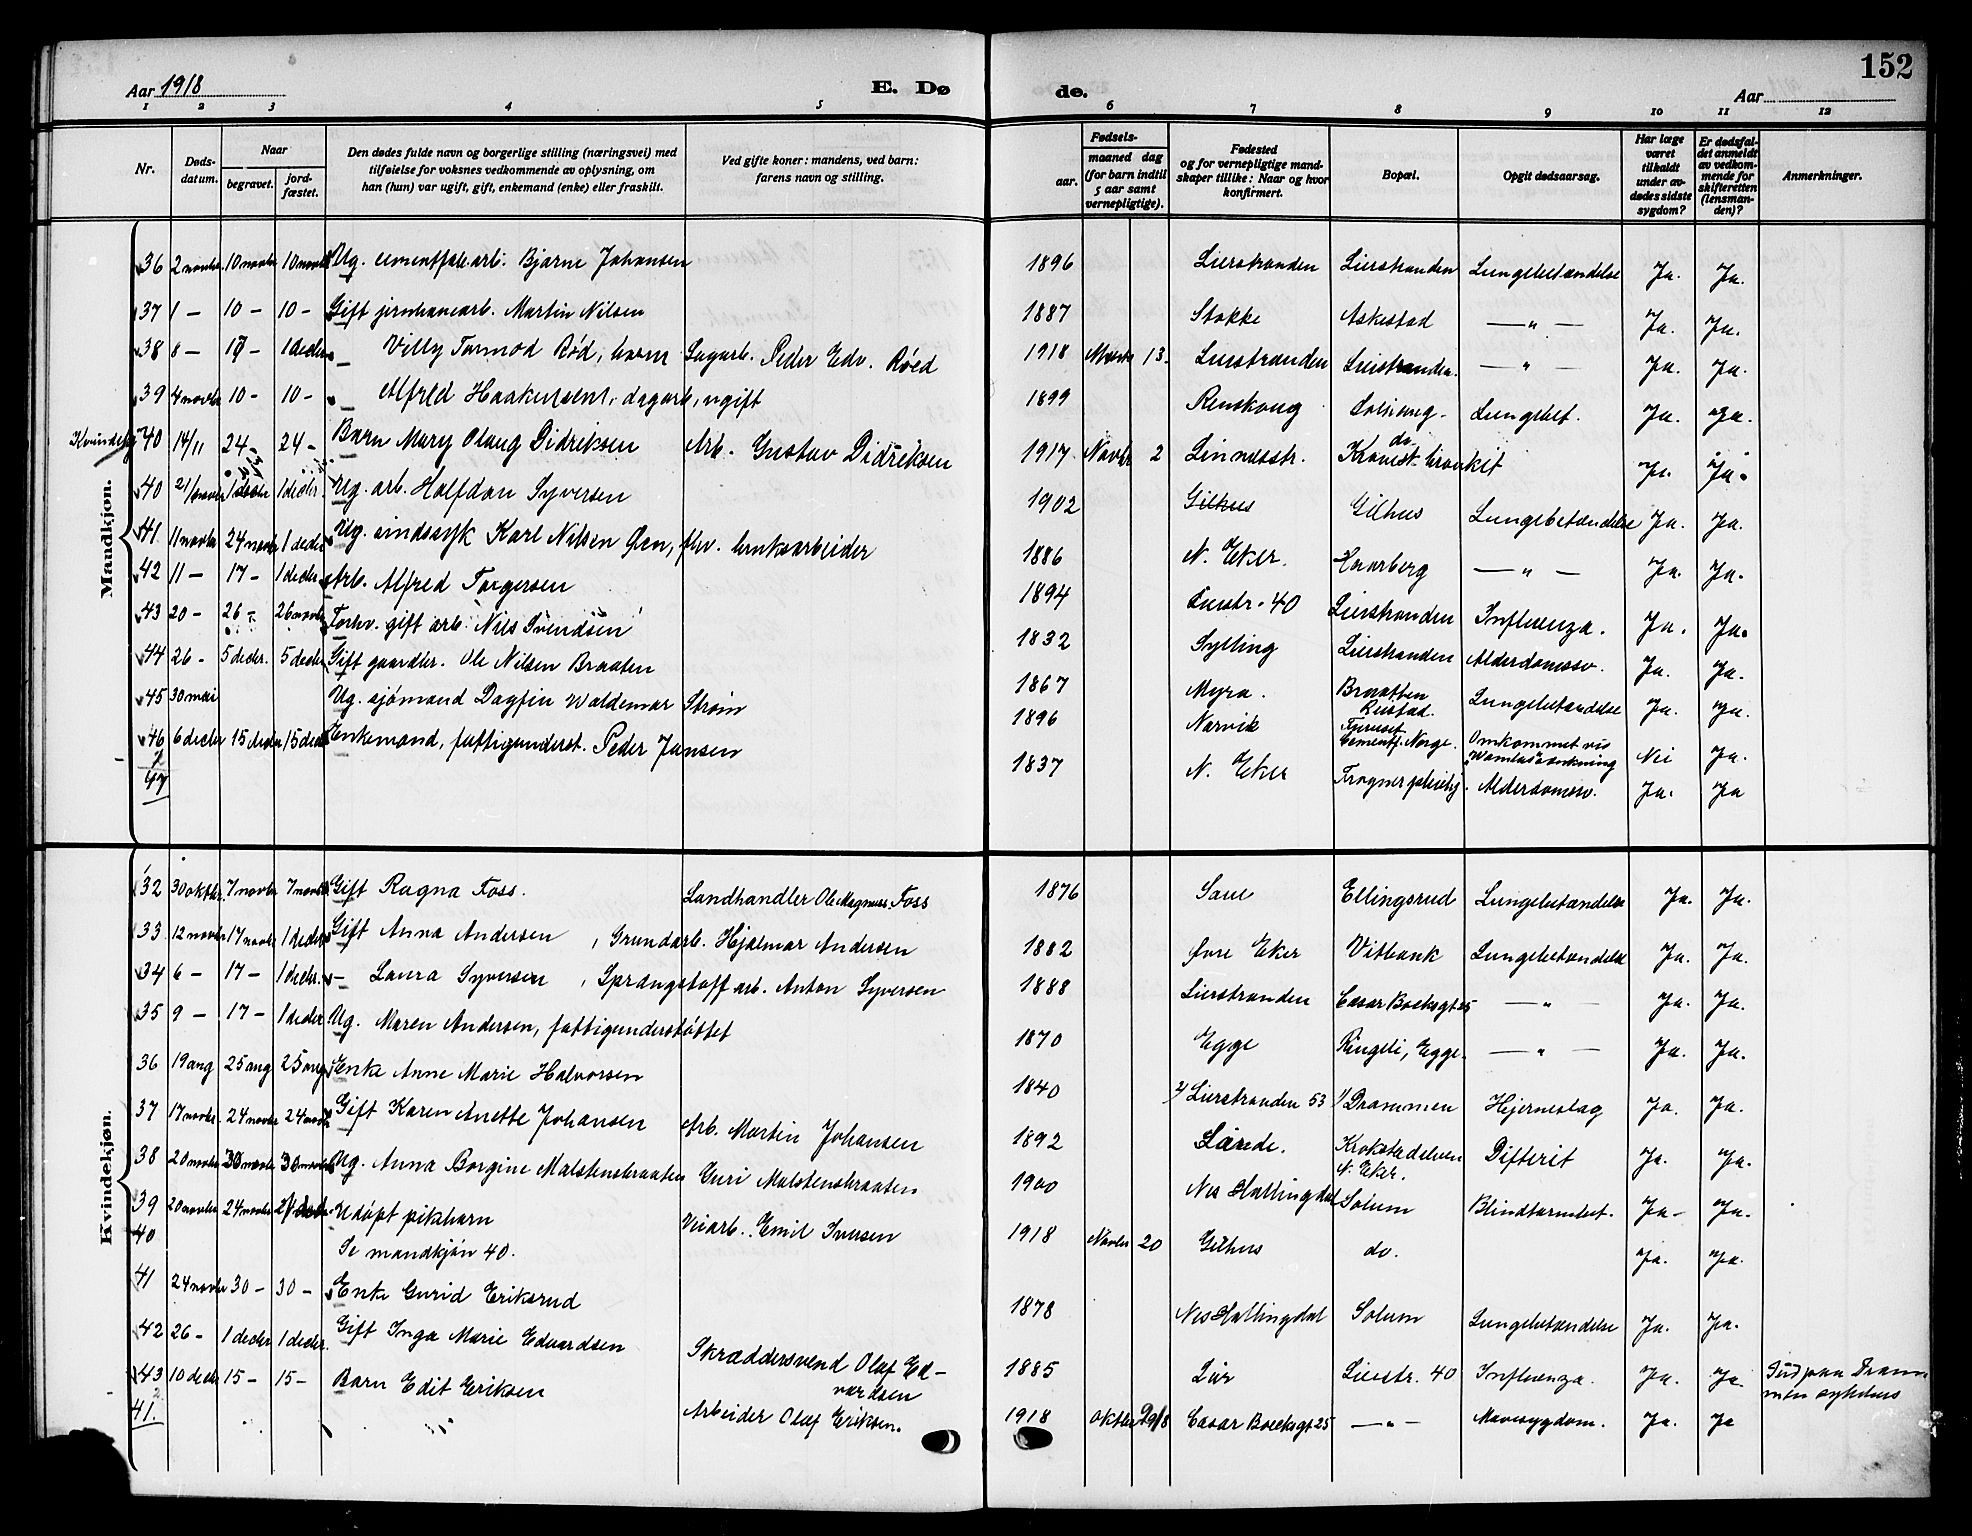 152
Aar 1918
E. Dø
de.
Aar
1 2 3 4 5 6 7 8 9 10 11 12
Nr.
Døds-
datum.
Naar
begravet.
jord-
fæstet.
Den dødes fulde navn og borgerlige stilling (næringsvei) med
tilføielse for voksnes vedkommende av oplysning, om
han (hun) var ugift, gift, enkemand (enke) eller fraskilt.
Ved gifte koner: mandens, ved barn:
farens navn og stilling.
Fødsels-
aar.
maaned dag
(for barn indtil
5 aar samt
vernepligtige).
Fødested
og for vernepligtige mand-
skaper tillike: Naar og hvor
konfirmert.
Bopæl.
Opgit dødsaarsag.
Har læge
været
tilkaldt
under av-
dødes sidste
sygdom?
Er dødsfal-
det anmeldt
av vedkom-
mende for
skifteretten
(lensman-
den)?
Anmerkninger.
Mandkjøn.
36 2 novbr. 10 novbr 10 novbr Ug. cementfab. arb. Bjarne Johansen 1896 Lierstranden Lierstranden Lungebetændelse Ja. Ja.
37 1 – 10 – 10 – Gift jernbanearb. Martin Nilsen 1887 Stokke Askestad — " — Ja. Ja.
38 8 – 17 – 1 decbr – Villy Tormod Rød, barn Sagarb. Peder Edv. Røed 1918 Marts 13. Lierstranden Lierstranden. — " — Ja. Ja.
39 4 novbr 10 – 10 – – Alfred Haakensen, dagarb., ugift 1899 Renskoug Solhaug. Lungebet. Ja. Ja.
Kvindekj. 40 14/11 24 – 24 – Barn Mary Olaug Didriksen Arb. Gustav Didriksen 1917 Novbr 2 Linnesstr. do. Kronist bronkit Ja. Ja.
40 21/novbr 1 decbr 1 decbr. Ug. arb. Halfdan Syversen 1902 Gilhus Gilhus Lungebetændelse Ja. Ja.
41 11 novbr 24 novbr 1 decbr Ug. sindssyk Karl Nilsen Øen, fhv. bruksarbeider 1886 N. Eker. Haarberg — " — Ja. Ja.
42 11 – 17 – 1 decbr Arb. Alfred Torgersen 1894 Lierstr. 40 Lierstranden Influenza. Ja. Ja.
43 20 – 26 – 26 novbr Forhv. gift arb. Nils Svendsen 1832 Sylling Lierstranden Alderdomssv. Ja. Ja.
44 26 – 5 decbr. 5 decbr Gift gaardbr. Ole Nilsen Braaten 1867 Myra. Braatten Lungebetændelse Ja. Ja.
45 30 mai Ug. sjömand Dagfin Waldemar Ström 1896 Narvik Cementf. Norge. Omkommet vis Nei Ja.
46 6 decbr 15 decbr 15 decbr Enkemand, fattigunderst. Peder Jansen 1837 N. Eker Frogner pleiehj. Alderdomssv. Ja. Ja
47
Kvindekjøn.
32 30 oktbr. 7 novbr 7 novbr Gift Ragna Foss. Landhandler Ole Magnuss. Foss 1876 Ellingsrud Lungebetændelse Ja. Ja.
33 12 novbr 17 novbr 1 decbr Gift Anna Andersen , Grundarb. Hjalmar Andersen 1882 Øvre Eker Vitbank Lungebetændelse Ja. Ja.
34 6 – 17 – 1 decbr. – Laura Syversen , Sprangstoff arb. Anton Syversen 1888 Lierstranden Cæsar Boeksgt 25 — " — Ja. Ja.
35 9 – 17 – 1 decbr Ug. Maren Andersen, fattigunderstöttet 1870 Egge Ringeli, Egge. — " — Ja. Ja.
36 19 aug 25 aug 25 aug Enke Anne Marie Halvorsen 1840 2/ Lierstranden 53 1/ Drammen Hjerneslag Ja. Ja.
37 17 novbr. 24 novbr 24 novbr Gift Karen Anette Johansen Arb. Martin Johansen 1892 Sande. Krokstadelven N. Eker. Difterit Ja. Ja.
38 20 novbr 30 novbr 30 novbr Ug. Anna Borgine Malstensbraaten Guri Malstensbraaten 1900 Nes Hallingdal Solum Blindtarmbet. Ja – Ja.
39 20 novbr 24 novbr Udöpt pikbarn Veiarb. Emil Iversen 1918 Novbr 20 Gilhus do. Ja. Ja.
40 Se mandkjön 40.
41 24 novbr 30 – 30 – Enke Gurid Eriksrud 1878 Nes Hallingdal Solum Lungebetændelse Ja. Ja.
42 26 – 1 decbr 1 decbr. Gift Inga Marie Edvardsen Skræddersvend Olaf Ed-
vardsen 1885 Lier Lierstr. 40 Influenza. Ja. Ja. Död paa Dram-
men sykehus
43 10 decbr 15 – 15 – Barn Edit Eriksen Arbeider Olaf Eriksen. 1918 Oktbr Cæsar Boeksgt 25 — " — Mavesygdom. Ja. Ja
41.